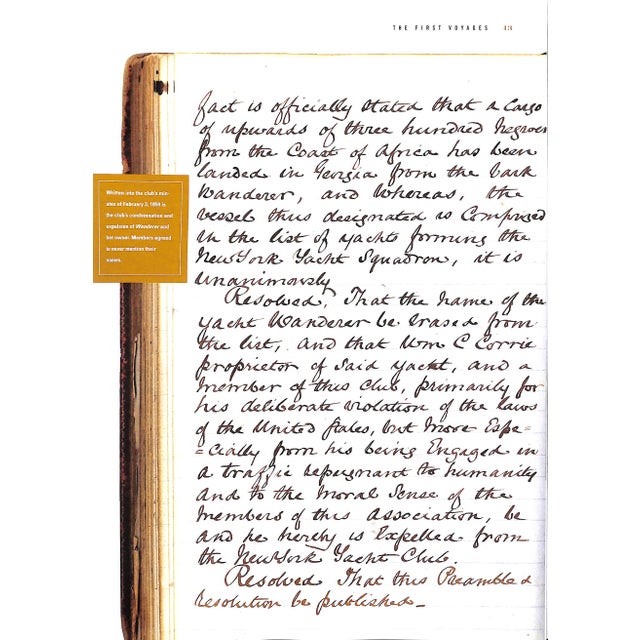 THE FIRST VOYAGES 43
Written into the club's min-
utes of February 3, 1859 is
the club's condemnation and
expulsion of Wanderer and
her owner. Members agreed
to never mention their
names.
fact is officially stated that a Cargo
of upwards of three hundred Negroes
from the Coast of Africa has been
landed in Georgia from the bark
Wanderer, and Whereas, the
vessel thus designated is Comprised
in the list of yachts forming the
New York Yacht Squadron, it is
unanimously
Resolved, That the name of the
yacht Wanderer be erased from
the list, and that Wm C Corrie
proprietor of said yacht, and a
member of this Club, primarily for
his deliberate violation of the laws
of the United States, but more Espe=
=cially from his being Engaged in
a traffic repugnant to humanity
and to the moral Sense of the
members of this association, be
and he hereby is Expelled from
the New York Yacht Club.
Resolved That this Preamble &
resolution be published_